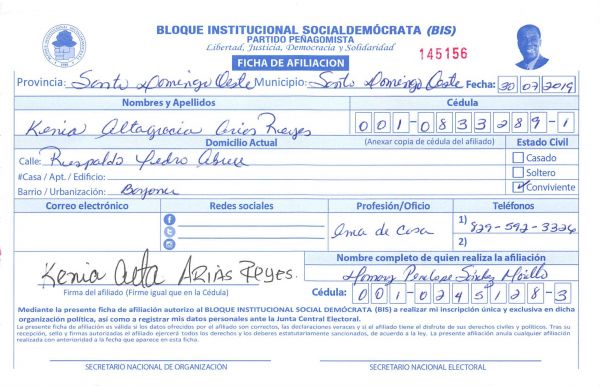 BLOQUE INSTITUCIONAL SOCIALDEMÓCRATA (BIS)
PARTIDO PEÑAGOMISTA
Libertad, Justicia, Democracia y Solidaridad
145156
FICHA DE AFILIACION
Provincia: Santo Domingo Oeste Municipio: Santo Domingo Oeste Fecha: 30 07 2019
Nombres y Apellidos Cédula
Kenia Altagracia Arias Reyes 001-0833289-1
Domicilio Actual (Anexar copia de cédula del afiliado) Estado Civil
Calle: Respaldo Pedro Abreu Casado
#Casa / Apt. / Edificio: Soltero
Barrio / Urbanización: Conviviente
Correo electrónico Redes sociales Profesión/Oficio Teléfonos
Ama de casa 1) 829-592-3326
2)
Nombre completo de quien realiza la afiliación
Kenia Alta ARIAS REYES.
Firma del afiliado (Firme igual que en la Cédula) Cédula: 001-0245128-3
Mediante la presente ficha de afiliación autorizo al BLOQUE INSTITUCIONAL SOCIAL DEMÓCRATA (BIS) a realizar mi inscripción única y exclusiva en dicha
organización política, así como a registrar mis datos personales ante la Junta Central Electoral.
La presente ficha de afiliación es válida si los datos ofrecidos por el afiliado son correctos, las declaraciones veraces y si el afiliado tiene el disfrute de sus derechos civiles y políticos. Tras su
recepción, sello y firmas autorizadas el afiliado ejercerá todos los derechos y los deberes estatutariamente sancionados, de acuerdo a la ley. La presente afiliación anula cualquier afiliación
realizada con anterioridad a la fecha que aparece en esta ficha.
SECRETARIO NACIONAL DE ORGANIZACIÓN SECRETARIO NACIONAL ELECTORAL